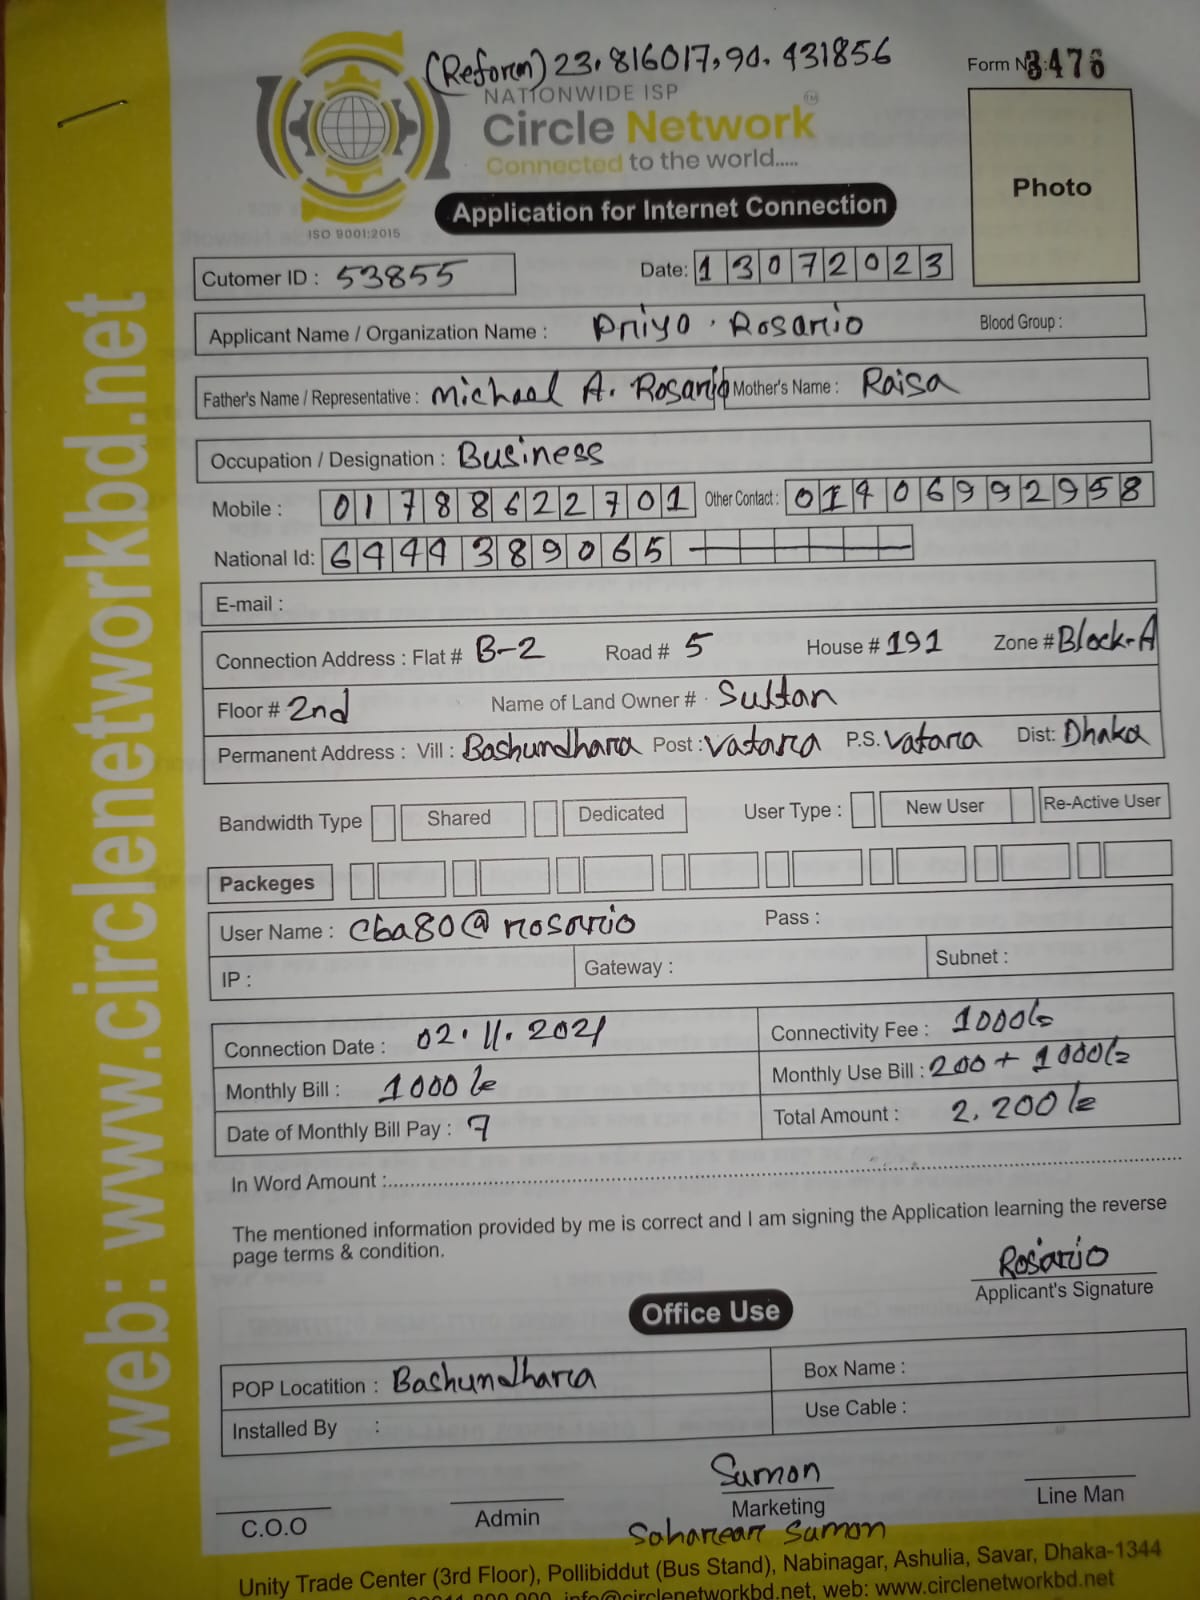 (Reform) 23.816017,90.431856
Form No: 3476
NATIONWIDE ISP
Circle Network
TM
Connected to the world.....
ISO 9001:2015
Application for Internet Connection
Photo
Cutomer ID : 53855
Date: 13072023
Applicant Name / Organization Name : Priyo . Rosario Blood Group :
Father's Name / Representative : Michael A. Rosario Mother's Name : Raisa
Occupation / Designation : Business
Mobile : 01788622701 Other Contact : 01406992958
National Id: 6444389065
E-mail :
Connection Address : Flat # B-2 Road # 5 House # 191 Zone # Block-A
Floor # 2nd Name of Land Owner # Sultan
Permanent Address : Vill : Bashundhara Post : Vatara P.S. Vatara Dist: Dhaka
Bandwidth Type Shared Dedicated User Type : New User Re-Active User
Packeges
User Name : cba80@rosario Pass :
IP : Gateway : Subnet :
Connection Date : 02.11.2021 Connectivity Fee : 1000/=
Monthly Bill : 1000/= Monthly Use Bill : 200 + 1000/=
Date of Monthly Bill Pay : 7 Total Amount : 2,200/=
In Word Amount :
The mentioned information provided by me is correct and I am signing the Application learning the reverse
page terms & condition.
Rosario
Applicant's Signature
Office Use
POP Locatition : Bashundhara Box Name :
Installed By : Use Cable :
Sumon
C.O.O Admin Marketing Line Man
Saharear Sumon
Unity Trade Center (3rd Floor), Pollibiddut (Bus Stand), Nabinagar, Ashulia, Savar, Dhaka-1344
info@circlenetworkbd.net, web: www.circlenetworkbd.net
web: www.circlenetworkbd.net